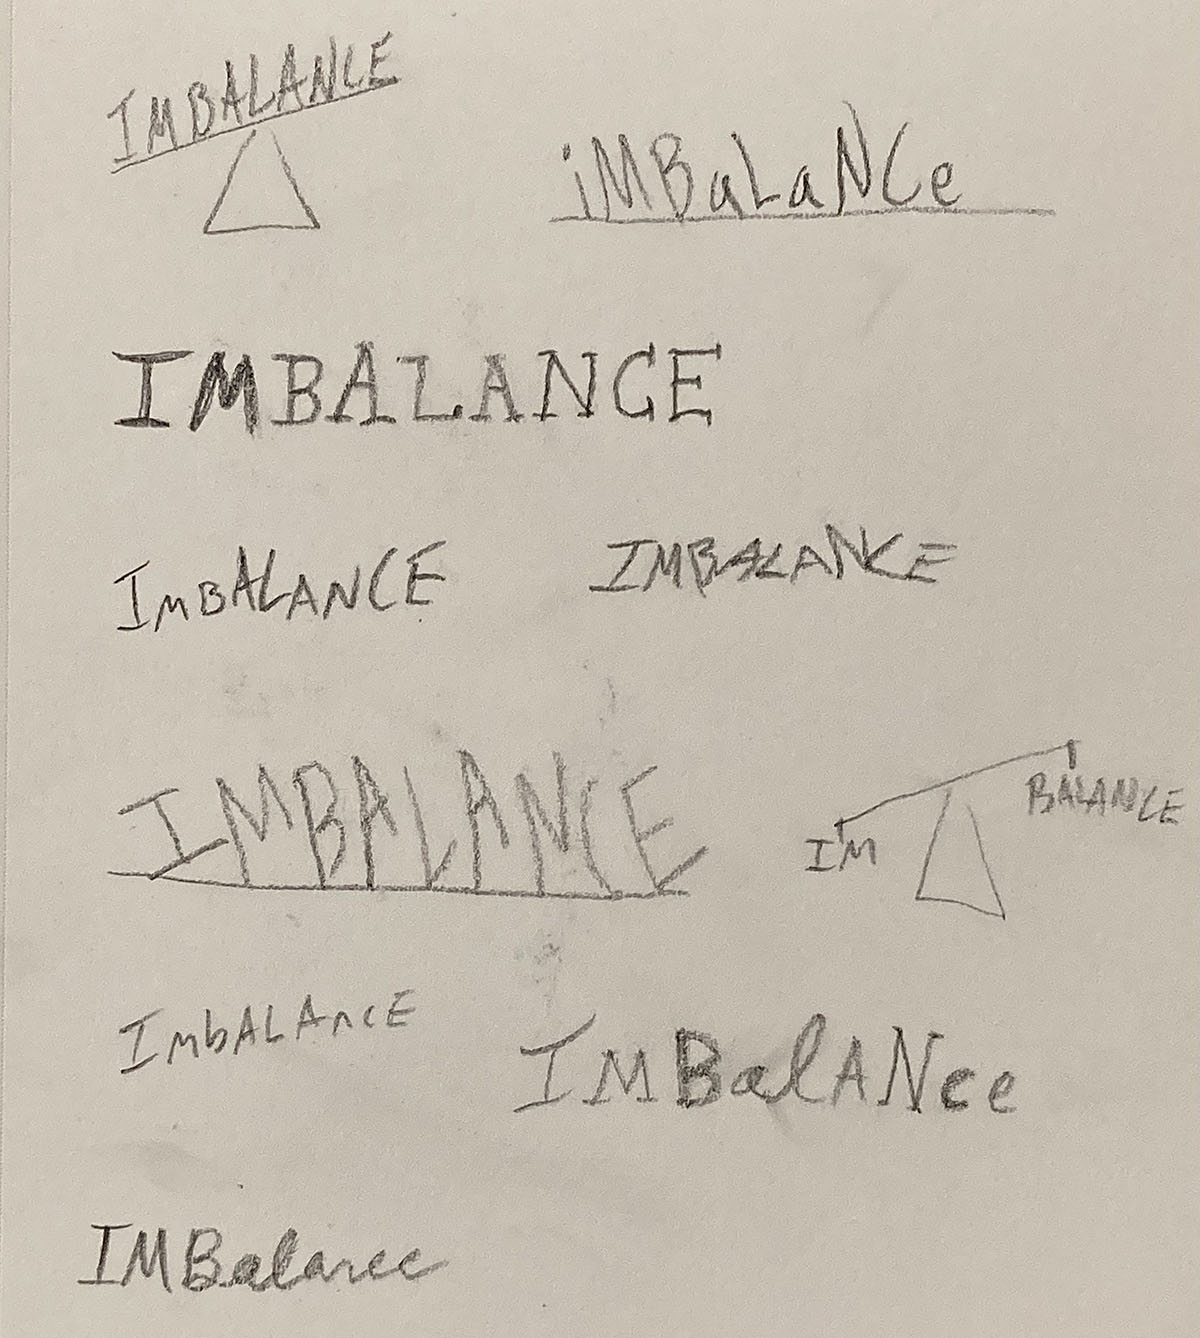 IMBALANCE
iMBaLaNCe
IMBALANCE
ImBALANCE
IMBALANCE
IMBALANCE
I'M
BALANCE
ImbALAncE
IMBalANce
IMBalance